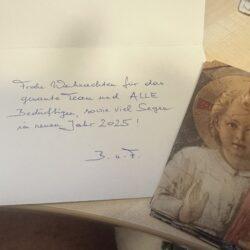 Frohe Weihnachten für das
gesamte Team und ALLE
Bedürftigen, sowie viel Segen
im neuen Jahr 2025!
B. u. F.